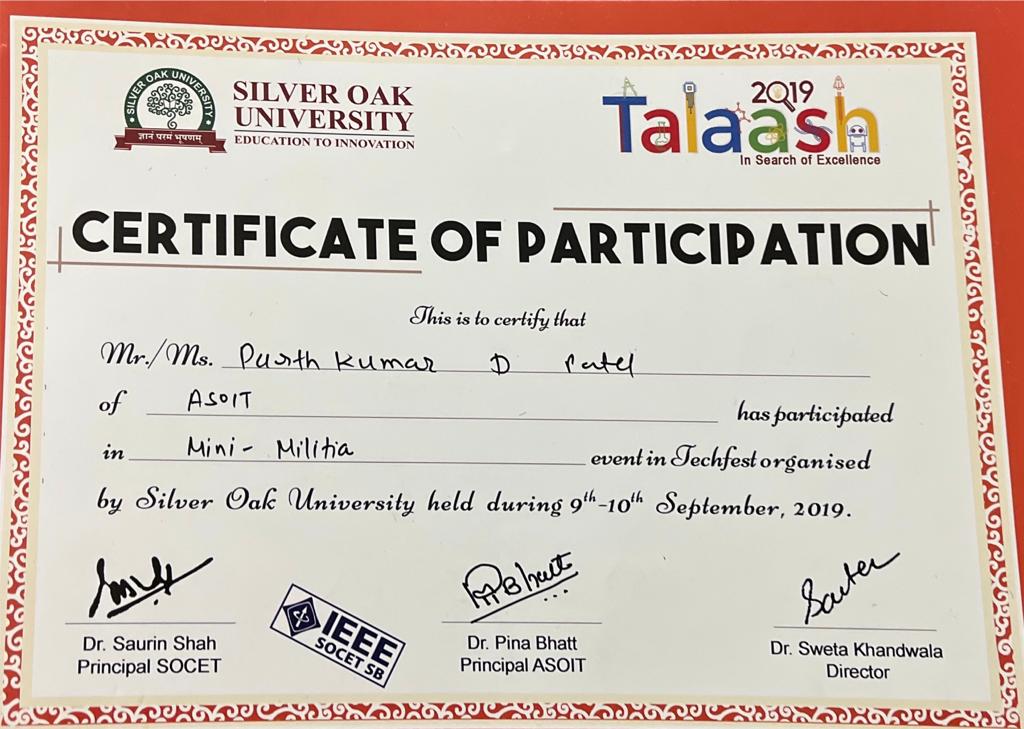 SILVER OAK UNIVERSITY
ज्ञानं परमं भूषणम्
SILVER OAK
UNIVERSITY
EDUCATION TO INNOVATION
2019
Talaash
In Search of Excellence
CERTIFICATE OF PARTICIPATION
This is to certify that
Mr./Ms. Parth Kumar D Patel
of ASOIT has participated
in Mini - Militia event in Techfest organised
by Silver Oak University held during 9th-10th September, 2019.
Dr. Saurin Shah
Principal SOCET
IEEE
SOCET SB
Dr. Pina Bhatt
Principal ASOIT
Dr. Sweta Khandwala
Director